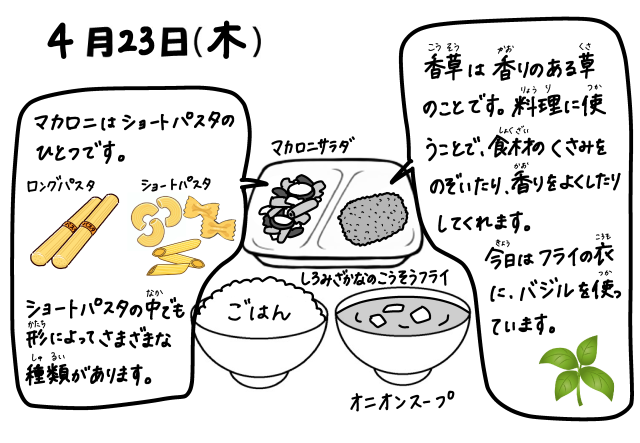 4月23日(木)
マカロニはショートパスタの
ひとつです。
ロングパスタ
ショートパスタ
ショートパスタの中でも
なか
形によって、さまざまな
かたち
種類があります。
しゅ るい
マカロニサラダ
しろみざかなのこうそうフライ
ごはん
オニオンスープ
こう そう かお くさ
香草は香りのある草
りょう り つか
のことです。料理に使
しょくざい
うことで、食材のくさみを
かお
のぞいたり、香りをよくしたり
してくれます。
きょう ころも
今日はフライの衣
つか
に、バジルを使っ
ています。